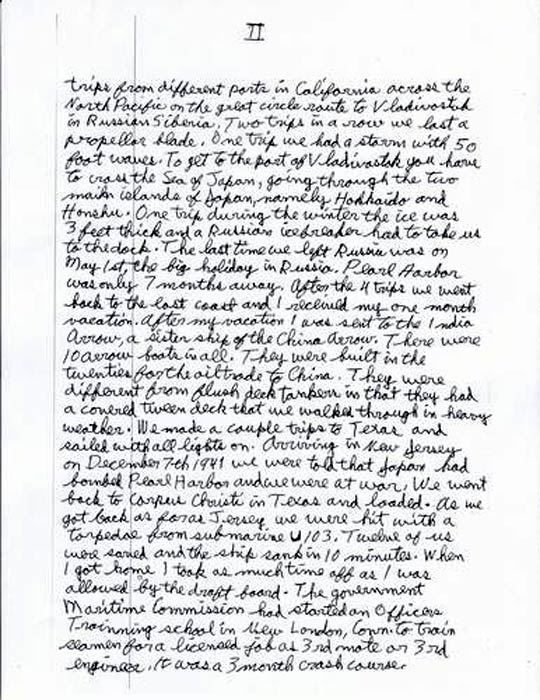 II
trips from different ports in California across the
North Pacific on the great circle route to Vladivostok
in Russian Siberia. Two trips in a row we lost a
propellor blade. One trip we had a storm with 50
foot waves. To get to the port of Vladivostok you have
to cross the Sea of Japan, going through the two
main islands of Japan, namely Hokkaido and
Honshu. One trip during the winter the ice was
3 feet thick and a Russian icebreaker had to take us
to the dock. The last time we left Russia was on
May 1st, the big holiday in Russia. Pearl Harbor
was only 7 months away. After the 4 trips we went
back to the east coast and I received my one month
vacation. After my vacation I was sent to the India
Arrow, a sister ship of the China Arrow. There were
10 arrow boats in all. They were built in the
twenties for the oil trade to China. They were
different from flush deck tankers in that they had
a covered tween deck that we walked through in heavy
weather. We made a couple trips to Texas and
sailed with all lights on. Arriving in New Jersey
on December 7th 1941 we were told that Japan had
bombed Pearl Harbor and we were at war. We went
back to Corpus Christi in Texas and loaded. As we
got back as far as Jersey we were hit with a
torpedoe from submarine U103. Twelve of us
were saved and the ship sank in 10 minutes. When
I got home I took as much time off as I was
allowed by the draft board. The government
Maritime Commission had started an Officers
Trainning school in New London, Conn. to train
seamen for a licensed job as 3rd mate or 3rd
engineer. It was a 3 month crash course.